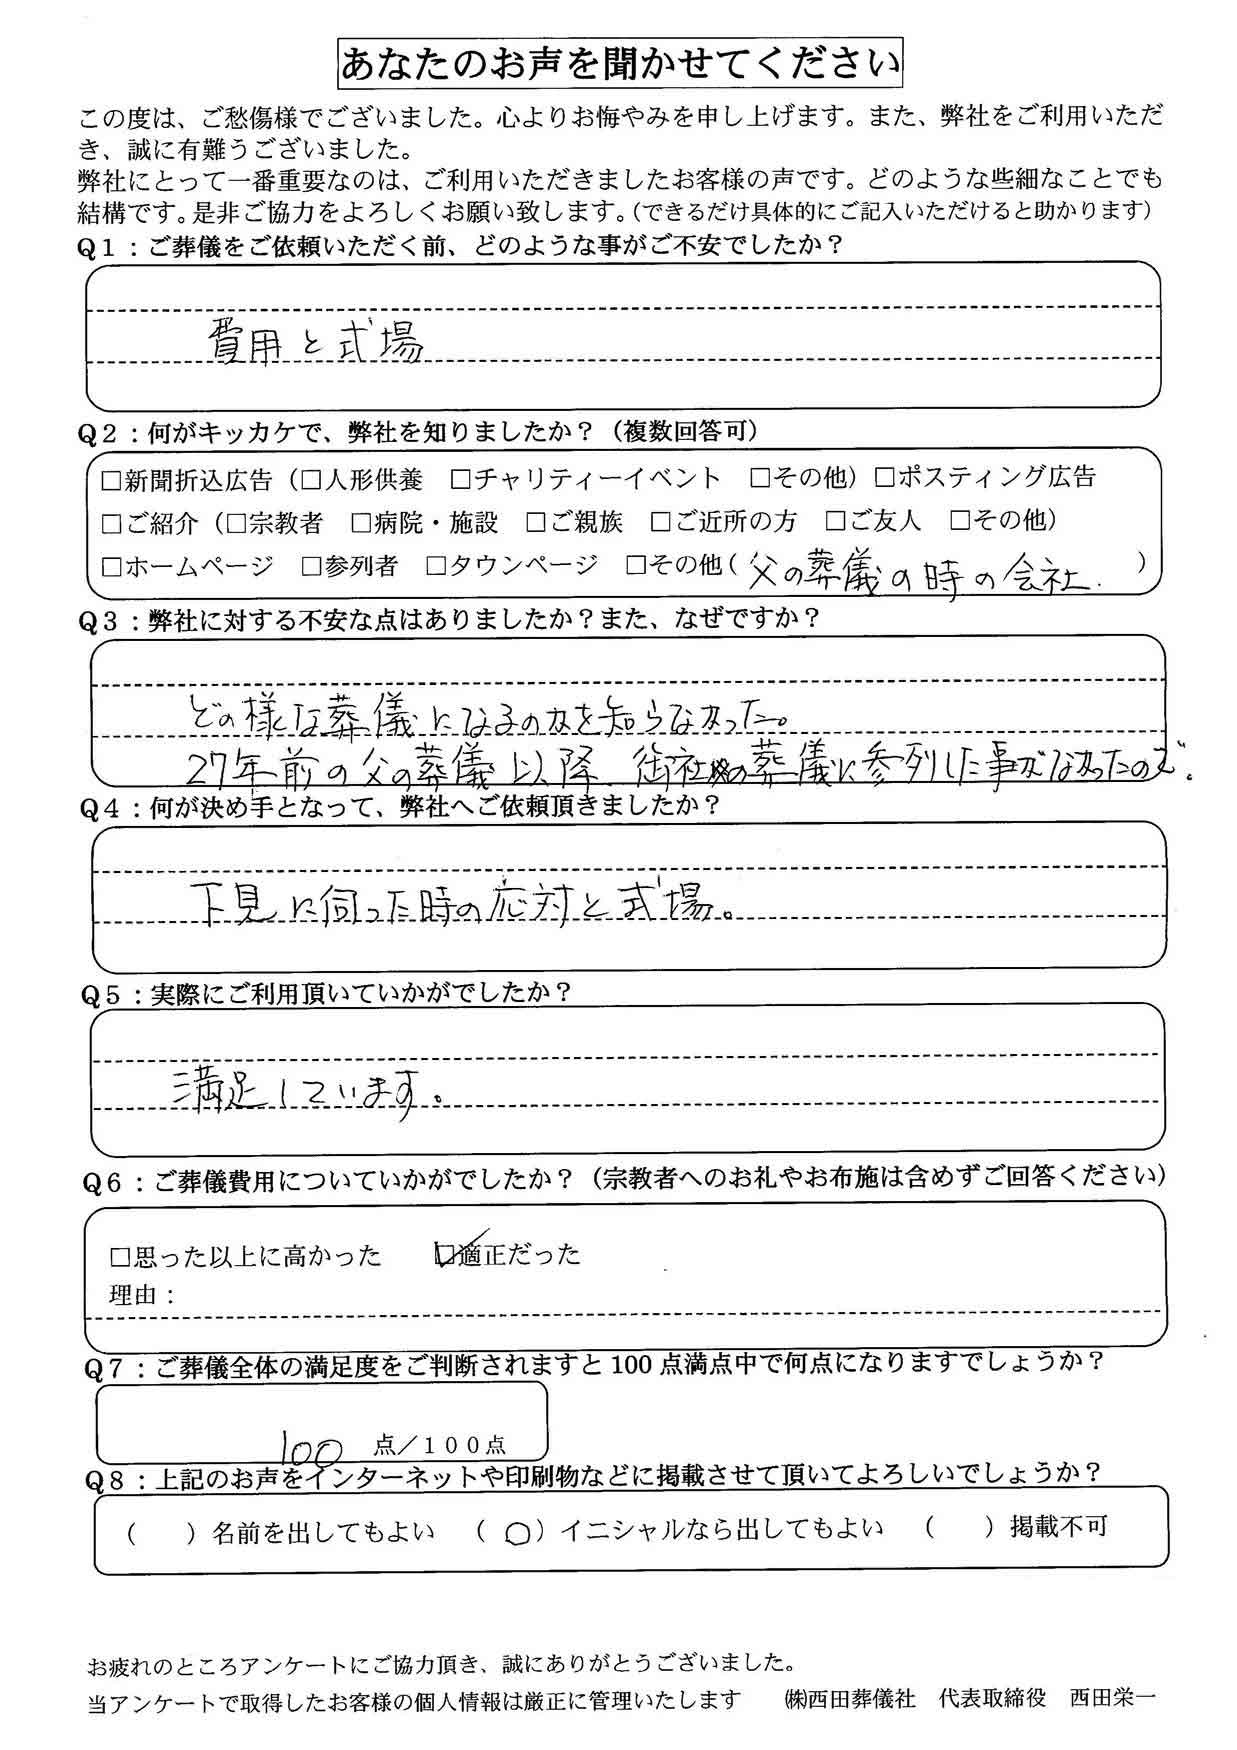 あなたのお声を聞かせてください
この度は、ご愁傷様でございました。心よりお悔やみを申し上げます。また、弊社をご利用いただ
き、誠に有難うございました。
弊社にとって一番重要なのは、ご利用いただきましたお客様の声です。どのような些細なことでも
結構です。是非ご協力をよろしくお願い致します。（できるだけ具体的にご記入いただけると助かります）
Q１：ご葬儀をご依頼いただく前、どのような事がご不安でしたか？
費用と式場
Q２：何がキッカケで、弊社を知りましたか？（複数回答可）
□新聞折込広告（□人形供養　□チャリティーイベント　□その他）□ポスティング広告
□ご紹介（□宗教者　□病院・施設　□ご親族　□ご近所の方　□ご友人　□その他）
□ホームページ　□参列者　□タウンページ　□その他（父の葬儀の時の会社.）
Q３：弊社に対する不安な点はありましたか？また、なぜですか？
どの様な葬儀になるのかを知らなかった。
27年前の父の葬儀以降 御社の葬儀に参列した事がなかったので。
Q４：何が決め手となって、弊社へご依頼頂きましたか？
下見に伺った時の応対と式場。
Q５：実際にご利用頂いていかがでしたか？
満足しています。
Q６：ご葬儀費用についていかがでしたか？（宗教者へのお礼やお布施は含めずご回答ください）
□思った以上に高かった　☑適正だった
理由：
Q７：ご葬儀全体の満足度をご判断されますと100点満点中で何点になりますでしょうか？
100 点／１００点
Q８：上記のお声をインターネットや印刷物などに掲載させて頂いてよろしいでしょうか？
（　　）名前を出してもよい　（ ○ ）イニシャルなら出してもよい　（　　）掲載不可
お疲れのところアンケートにご協力頂き、誠にありがとうございました。
当アンケートで取得したお客様の個人情報は厳正に管理いたします　㈱西田葬儀社　代表取締役　西田栄一